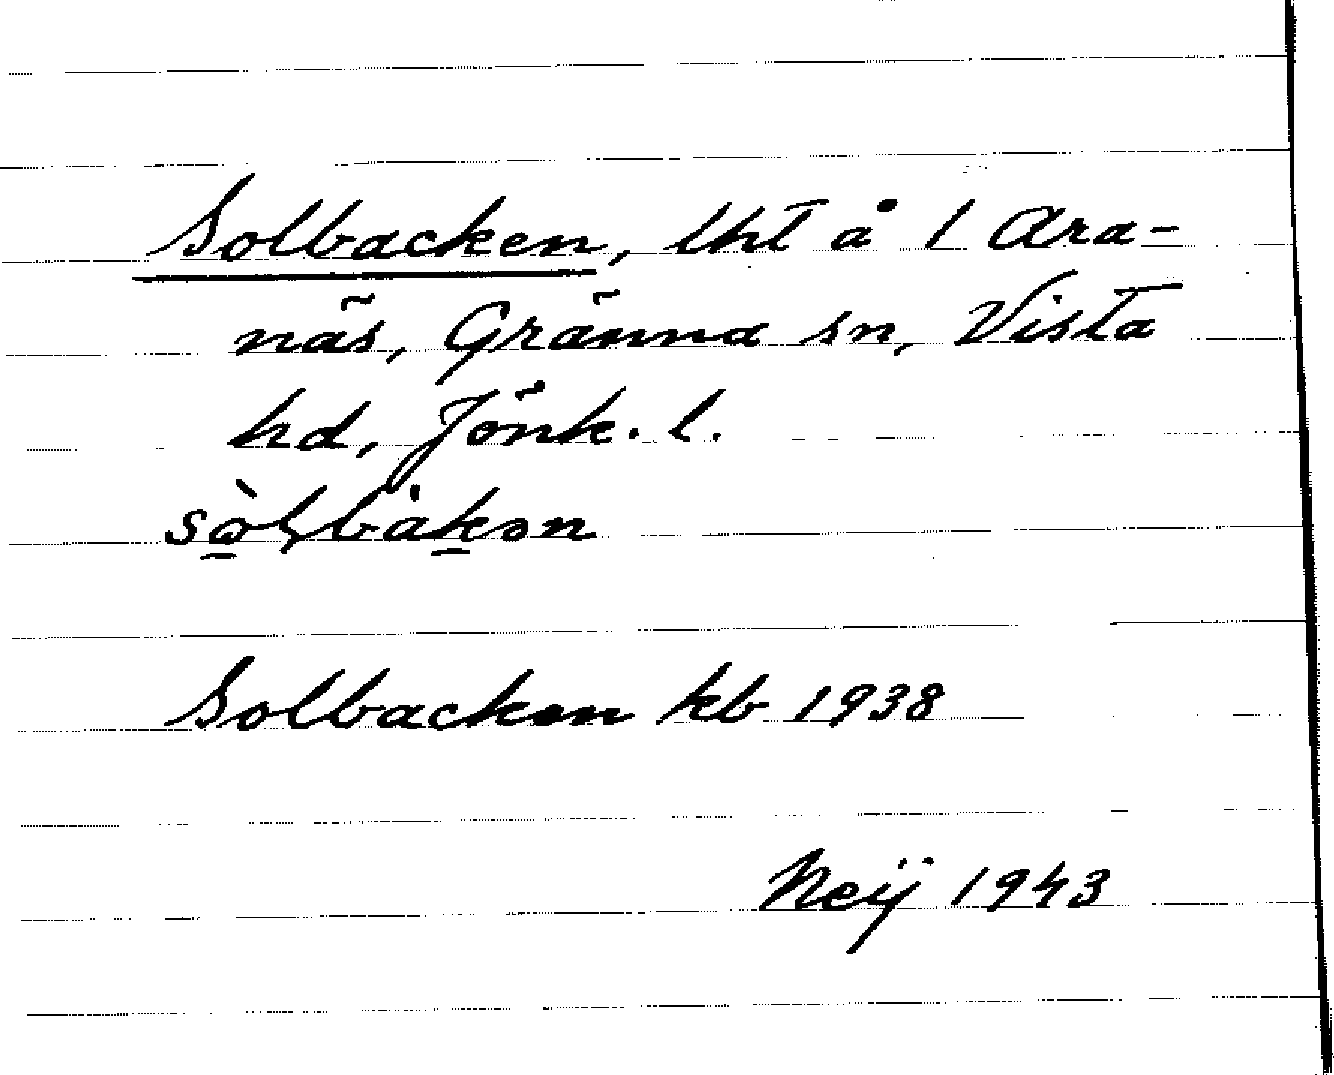 Solbacken, lht å 1 Ara-
näs, Gränna sn, Vista
hd, Jönk. l.
Solbacken kb 1938
Neij 1943